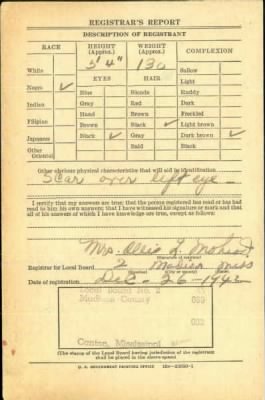 REGISTRAR'S REPORT
DESCRIPTION OF REGISTRANT
RACE HEIGHT (Approx.) WEIGHT (Approx.) COMPLEXION
5' 4" 130
White Sallow
EYES HAIR Light
Negro ✓ Ruddy
Blue Blonde Dark
Indian Gray Red Freckled
Hazel Brown Light brown
Filipino Brown Black ✓ Dark brown ✓
Japanese Black ✓ Gray Black
Other Oriental Bald
Other obvious physical characteristics that will aid in identification
Scar over left eye
I certify that my answers are true; that the person registered has read or has had read to him his own answers; that I have witnessed his signature or mark and that all of his answers of which I have knowledge are true, except as follows:
Mrs. L.
(Signature of registrar)
Registrar for Local Board 2 Madison Miss
(Number) (City or county) (State)
Date of registration Dec - 26 - 194
Local Board No. 2
Madison County 089
002
Canton, Mississippi
(The stamp of the Local Board having jurisdiction of the registrant shall be placed in the above space)
U. S. GOVERNMENT PRINTING OFFICE